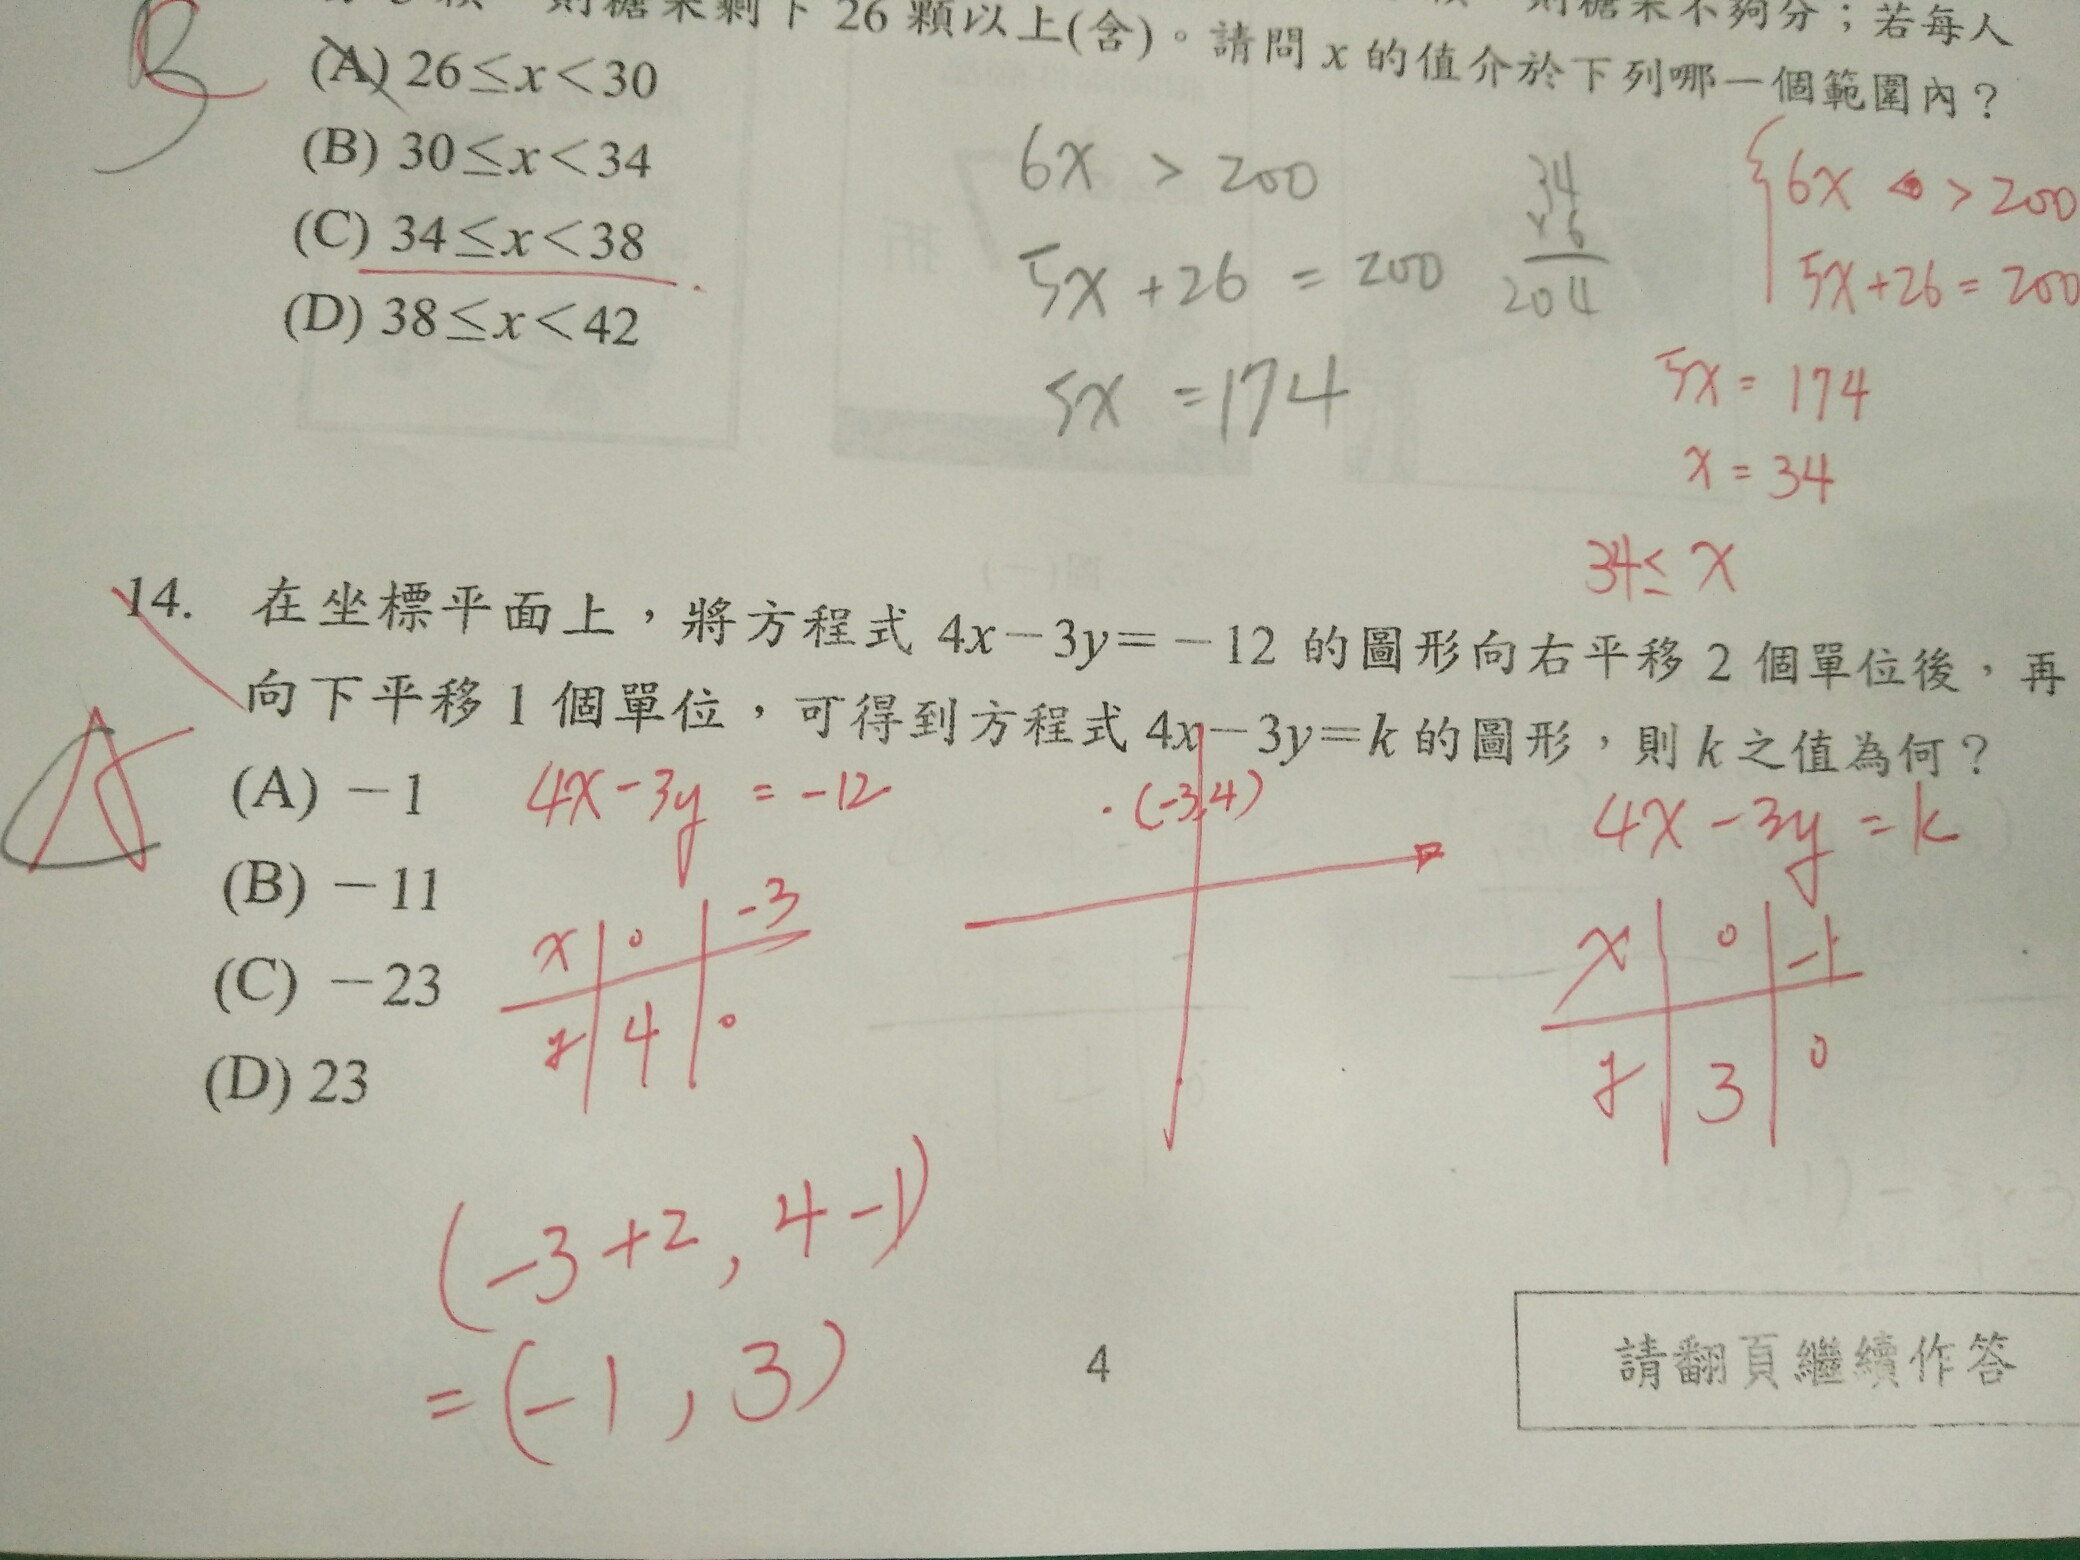 則糖果剩下 26 顆以上(含)。請問 x 的值介於下列哪一個範圍內？
則糖果不夠分；若每人
(A) 26≤x<30
(B) 30≤x<34
(C) 34≤x<38
(D) 38≤x<42
6x > 200
5x + 26 = 200
5x = 174
34
×6
204
6x > 200
5x+26 = 200
5x = 174
x = 34
34 ≤ x
14. 在坐標平面上，將方程式 4x－3y＝－12 的圖形向右平移 2 個單位後，再
向下平移 1 個單位，可得到方程式 4x－3y＝k 的圖形，則 k 之值為何？
(A) －1
(B) －11
(C) －23
(D) 23
4x-3y = -12
x 0 -3
y 4 0
(-3,4)
4x-3y = k
x 0 -1
y 3 0
(-3+2, 4-1)
= (-1, 3)
4
請翻頁繼續作答